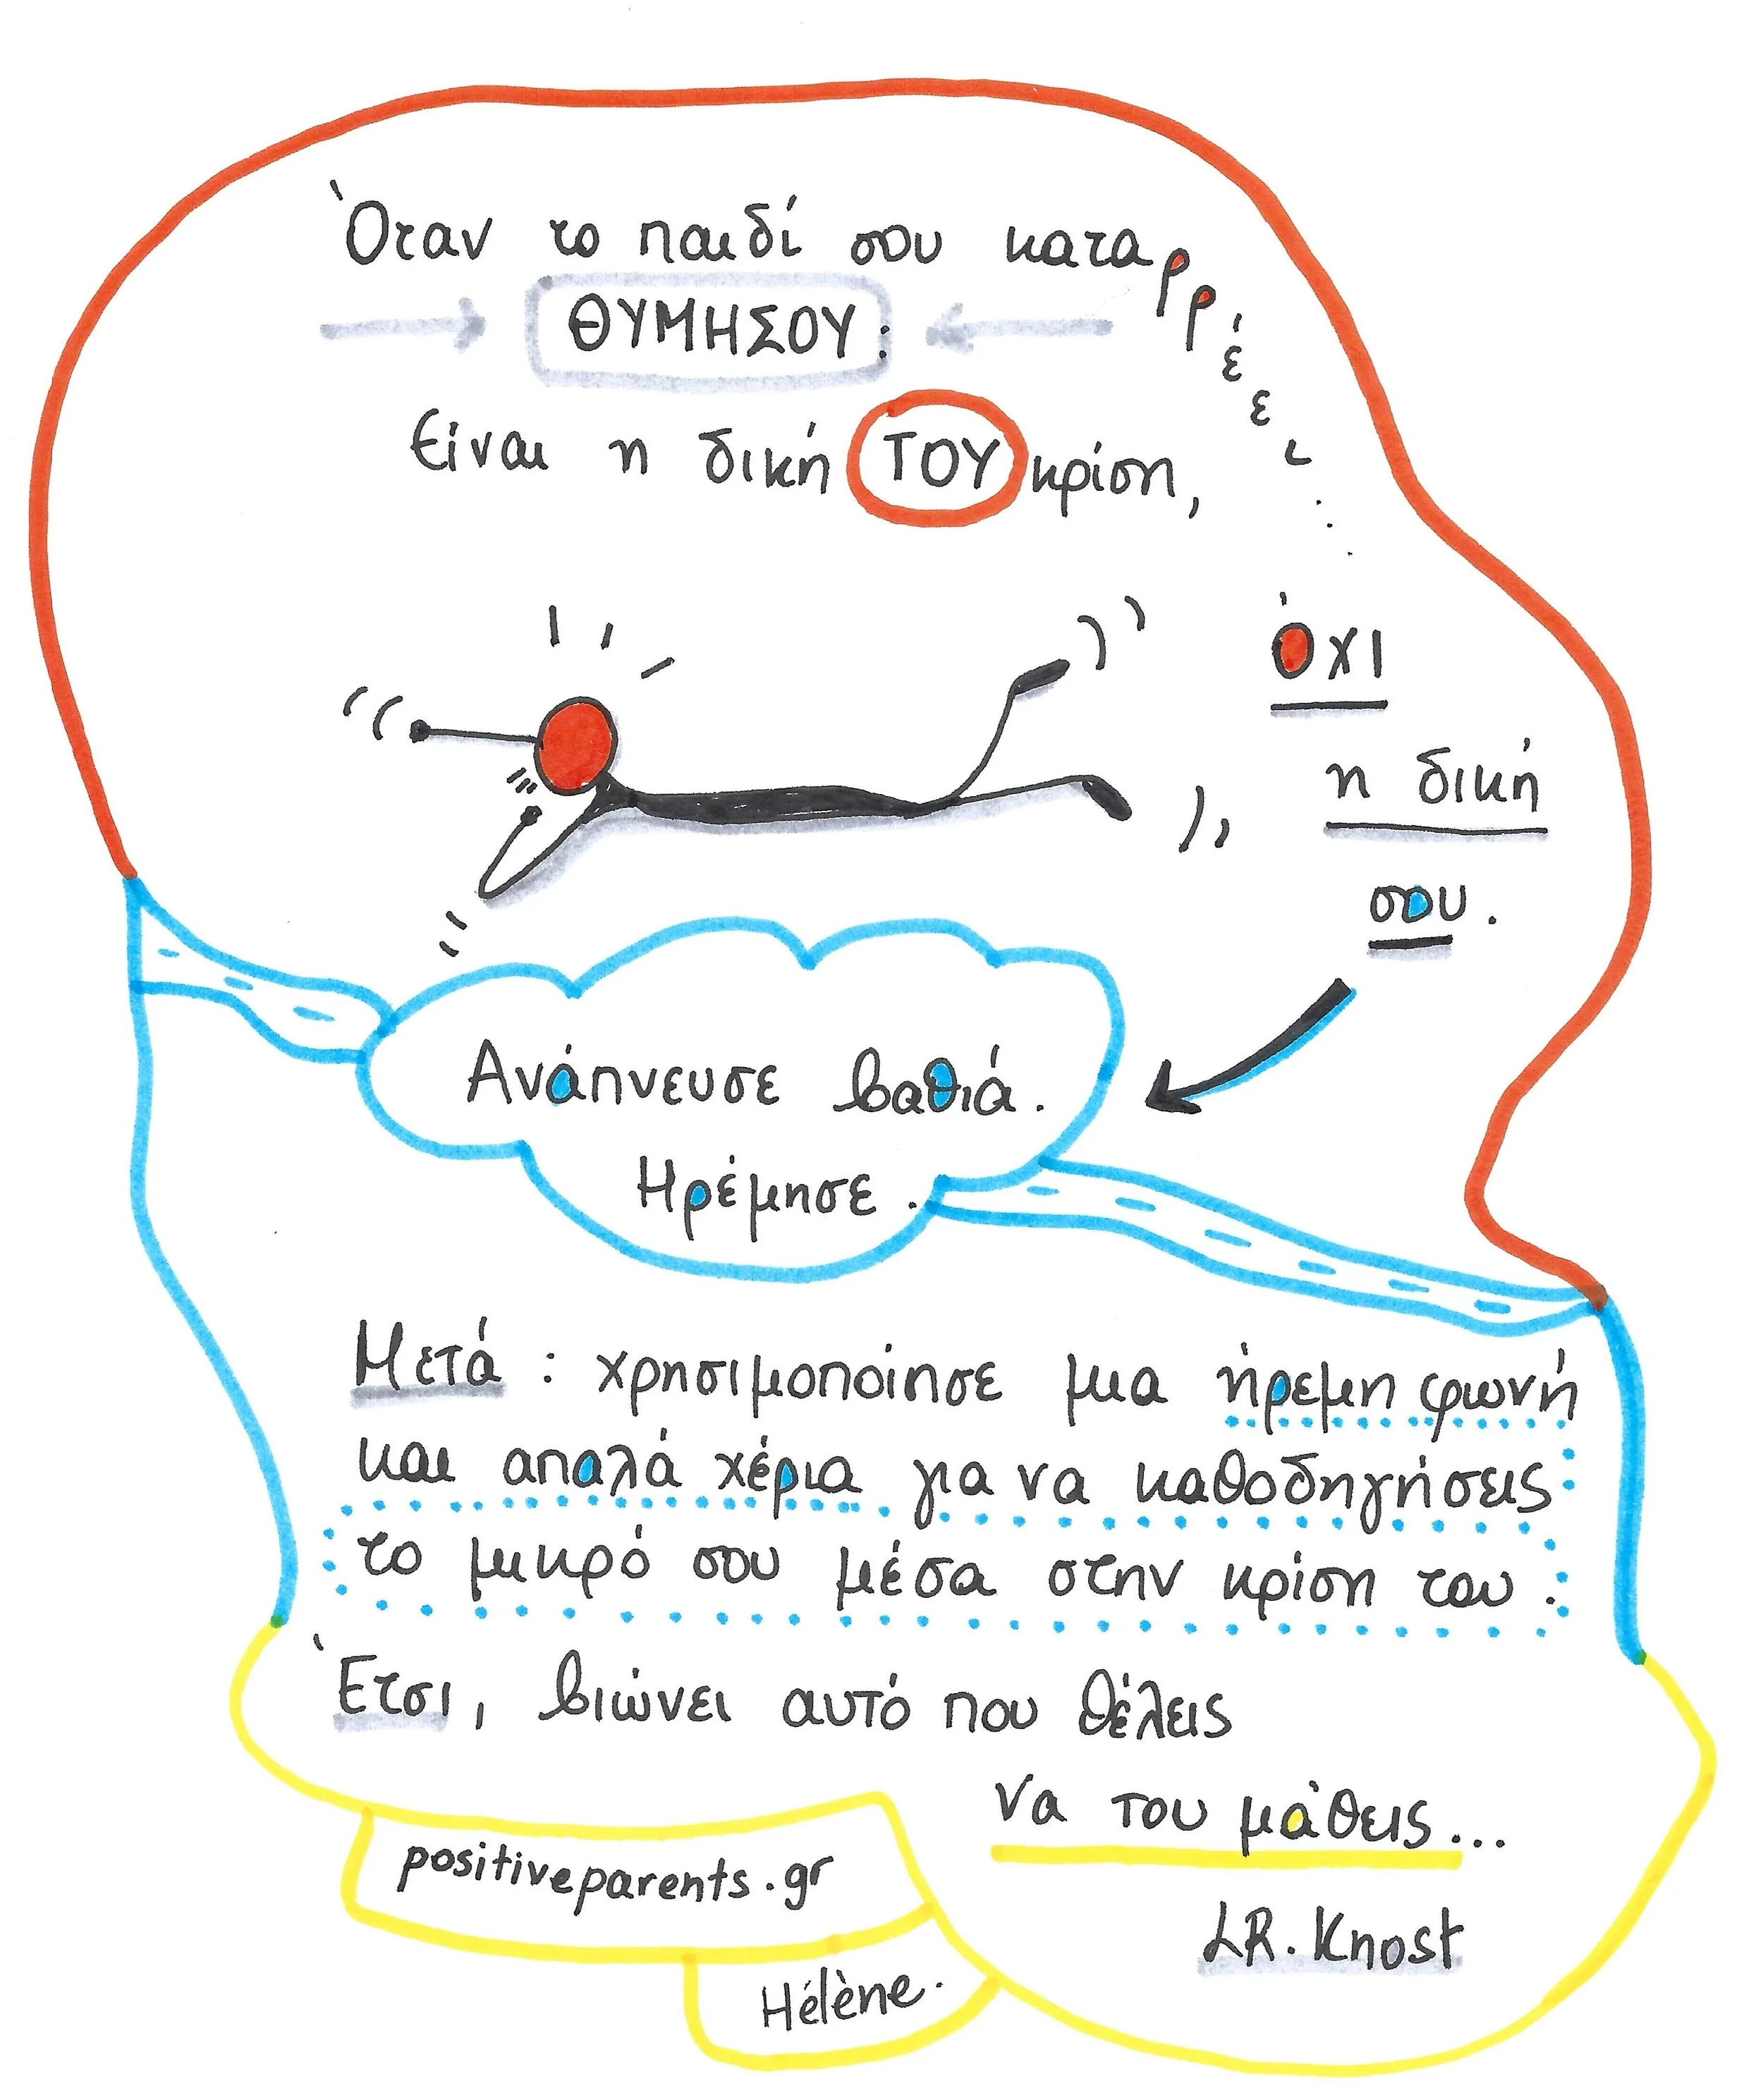 Όταν το παιδί σου καταρρέει...
ΘΥΜΗΣΟΥ:
Είναι η δική ΤΟΥ κρίση,
όχι
η δική
σου.
Ανάπνευσε βαθιά.
Ηρέμησε.
Μετά: χρησιμοποίησε μια ήρεμη φωνή
και απαλά χέρια για να καθοδηγήσεις
το μικρό σου μέσα στην κρίση του.
Έτσι, βιώνει αυτό που θέλεις
να του μάθεις...
positiveparents.gr
LR. Knost
Hélène.